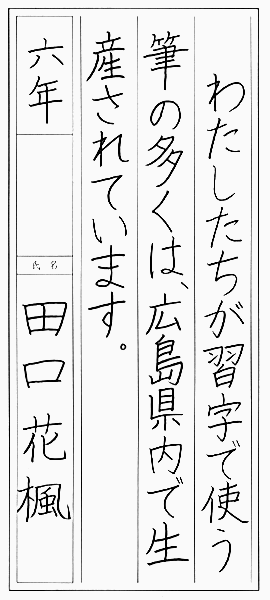 わたしたちが習字で使う
筆の多くは、広島県内で生
産されています。
六年
氏名
田口花楓